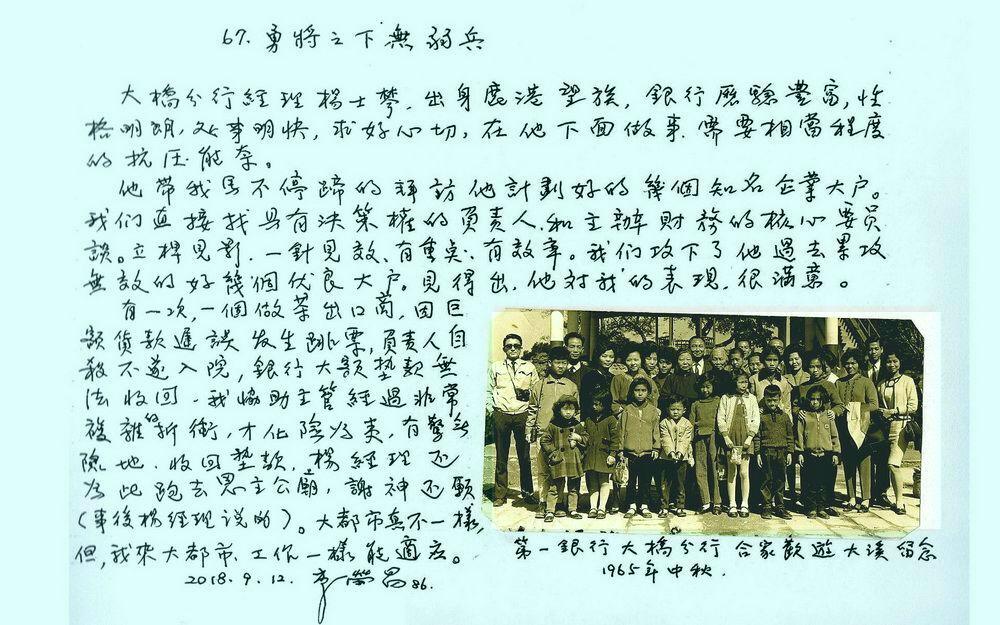 67. 勇將之下無弱兵
大橋分行經理楊士夢，出身鹿港望族，銀行歷驗豐富，性
格明朗，处事明快，求好心切，在他下面做事需要相當程度
的抗压能奈。
他帶我馬不停蹄的拜訪他計劃好的幾個知名企業大户。
我们直接找具有決策權的負責人和主辦財務的核心要員
談。立桿見影，一針見效、有重点、有效率。我们攻下了他過去累攻
無效的好幾個优良大户。見得出，他对我的表現，很滿意。
有一次，一個做茶出口商，因巨
額貨款遲誤发生跳票，負責人自
殺不遂入院，銀行大額墊款無
法收回。我協助主管經過非常
複雜折衝，才化險為夷，有驚無
險地，收回墊款，楊經理还
為此跑去恩主公廟，謝神还願
（事後楊經理説的）。大都市真不一樣，
但，我來大都市，工作一樣能適应。
2018.9.12. 李榮昌 86.
第一銀行大橋分行合家歡遊大溪留念
1965年中秋.